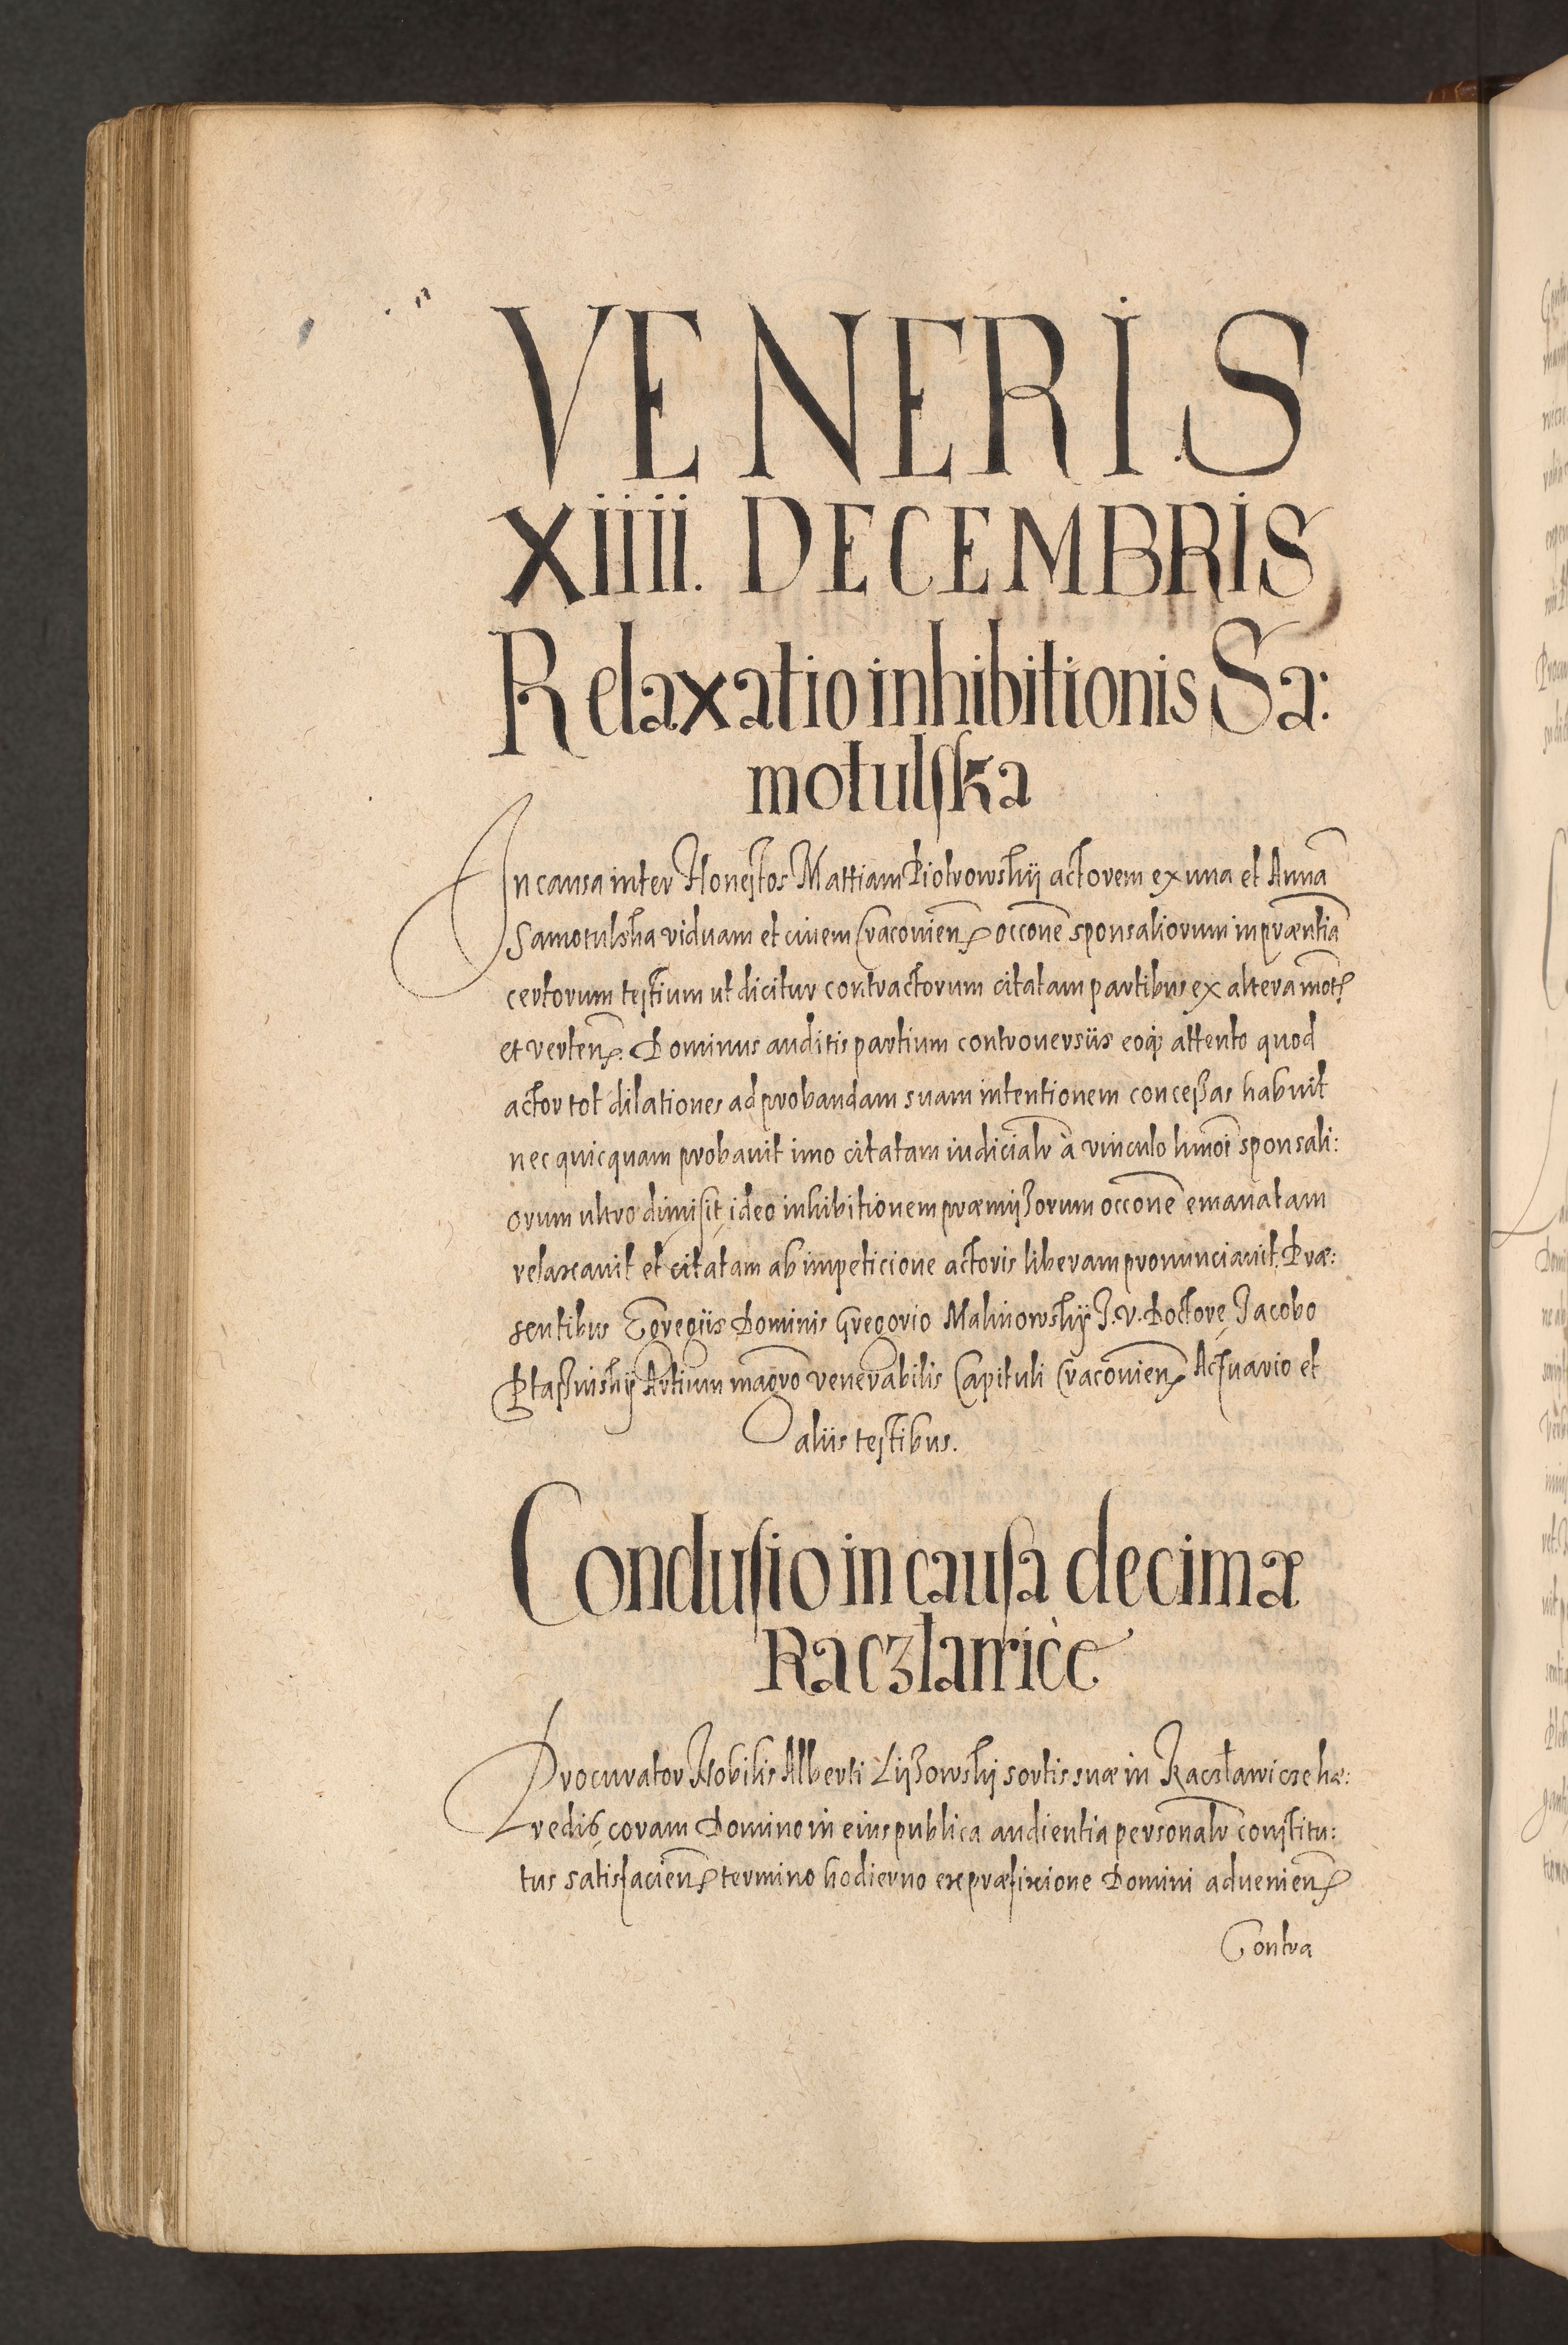 VENERIS
XIIII. DECEMBRIS
Relaxatio inhibitionis Sa:
motulska
In causa inter Honestos Mattiam Piotrowskij actorem ex una et Annã
Samotulska viduam et civem Cracovieñ occõne sponsaliorum in præntia
certorum testium ut dicitur contractorum citatam partibus ex altera mot
et verteñ. Dominus auditis partium controversiis eoq; attento quod
actor tot dilationes ad probandam suam intentionem conceßas habuit
nec quicquam probavit imo citatam iudicialr à vinculo hmõi sponsali:
orum ultro dimisit, ideo inhibitionem præmißorum occõne emanatam
relaxavit et citatam ab impeticione actoris liberam pronunciavit. Præ:
sentibus Egregiis Dominis Gregorio Malinowskij J. V. Doctore, Jacobo
Ptaßniskij Artium magrõ venerabilis Capituli Cracovieñ Actuario et
aliis testibus.
Conclusio in causa decimæ
Raczlawice
Procurator Nobilis Alberti Lyßowskij sortis suæ in Raczlawicze hæ:
redis, coram Domino in eius publica audientia personalr constitu:
tus satisfacieñ termino hodierno ex præfixione Domini advenieñ
Contra